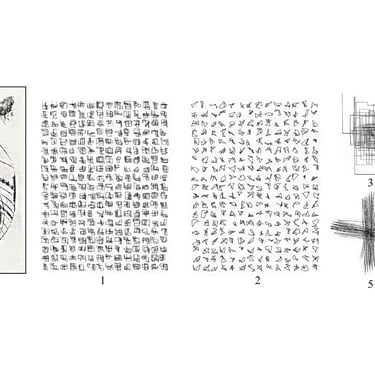 3
1
2
5